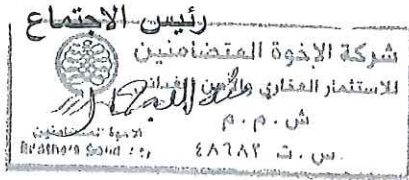 رئيس الاجتماع
شركة الإخوة المتضامنين
للاستثمار العقاري والأمن الغذائي
ش . م . م
الاخوة المتضامنين
س . ت ٤٨٦٨٢